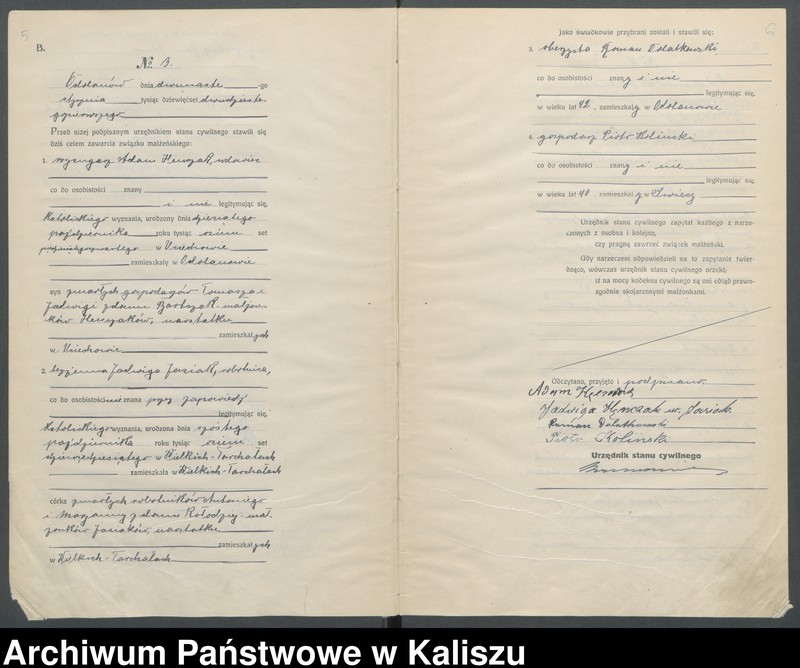 5
B.
№ 3.
Odolanów dnia dwunaste -go
stycznia tysiąc dziewięćset dwudzieste-
go pierwszego
Przed niżej podpisanym urzędnikiem stanu cywilnego stawili się
dziś celem zawarcia związku małżeńskiego:
1. Adam wdowiec
co do osobistości znany
i nie legitymując się,
katolickiego wyznania, urodzony dnia dziesiątego
października roku tysiąc osiem set
w Uciechowie
zamieszkały w Odolanowie
syn zmarłych gospodarzy Tomasza i
Jadwigi z domu Bartczak małżon-
ków Henczaków, na ostatku
zamieszkałych
w Uciechowie
2. Jadwiga Jasiak, robotnica,
co do osobistości znana przez zapowiedź
legitymując się,
katolickiego wyznania, urodzona dnia szóstego
października roku tysiąc osiem set
dziewięćdziesiątego w Wielkich-Tarchałach
zamieszkała w Wielkich-Tarchałach
córka zmarłych robotników Antoniego
i Maryanny z domu Kołodziej mał-
żonków Jasiaków, na ostatku
zamieszkałych
w Wielkich-Tarchałach
6
Jako świadkowie przybrani zostali i stawili się:
3. oberzysta Roman Dolatkowski
co do osobistości znany i nie
legitymując się,
w wieku lat 42, zamieszkały w Odolanowie
4. gospodarz Piotr Koliński
co do osobistości znany i nie
legitymując się,
w wieku lat 40 zamieszkały w Świecy
Urzędnik stanu cywilnego zapytał każdego z narze-
czonych z osobna i kolejno,
czy pragną zawrzeć związek małżeński.
Gdy narzeczeni odpowiedzieli na to zapytanie twier-
dząco, wówczas urzędnik stanu cywilnego orzekł;
iż na mocy kodeksu cywilnego są oni odtąd prawo-
zgodnie skojarzonymi małżonkami.
Odczytano, przyjęto i podpisano.
Adam
Jadwiga Henczak ur. Jasiak
Roman Dolatkowski
Piotr Koliński
Urzędnik stanu cywilnego
Archiwum Państwowe w Kaliszu